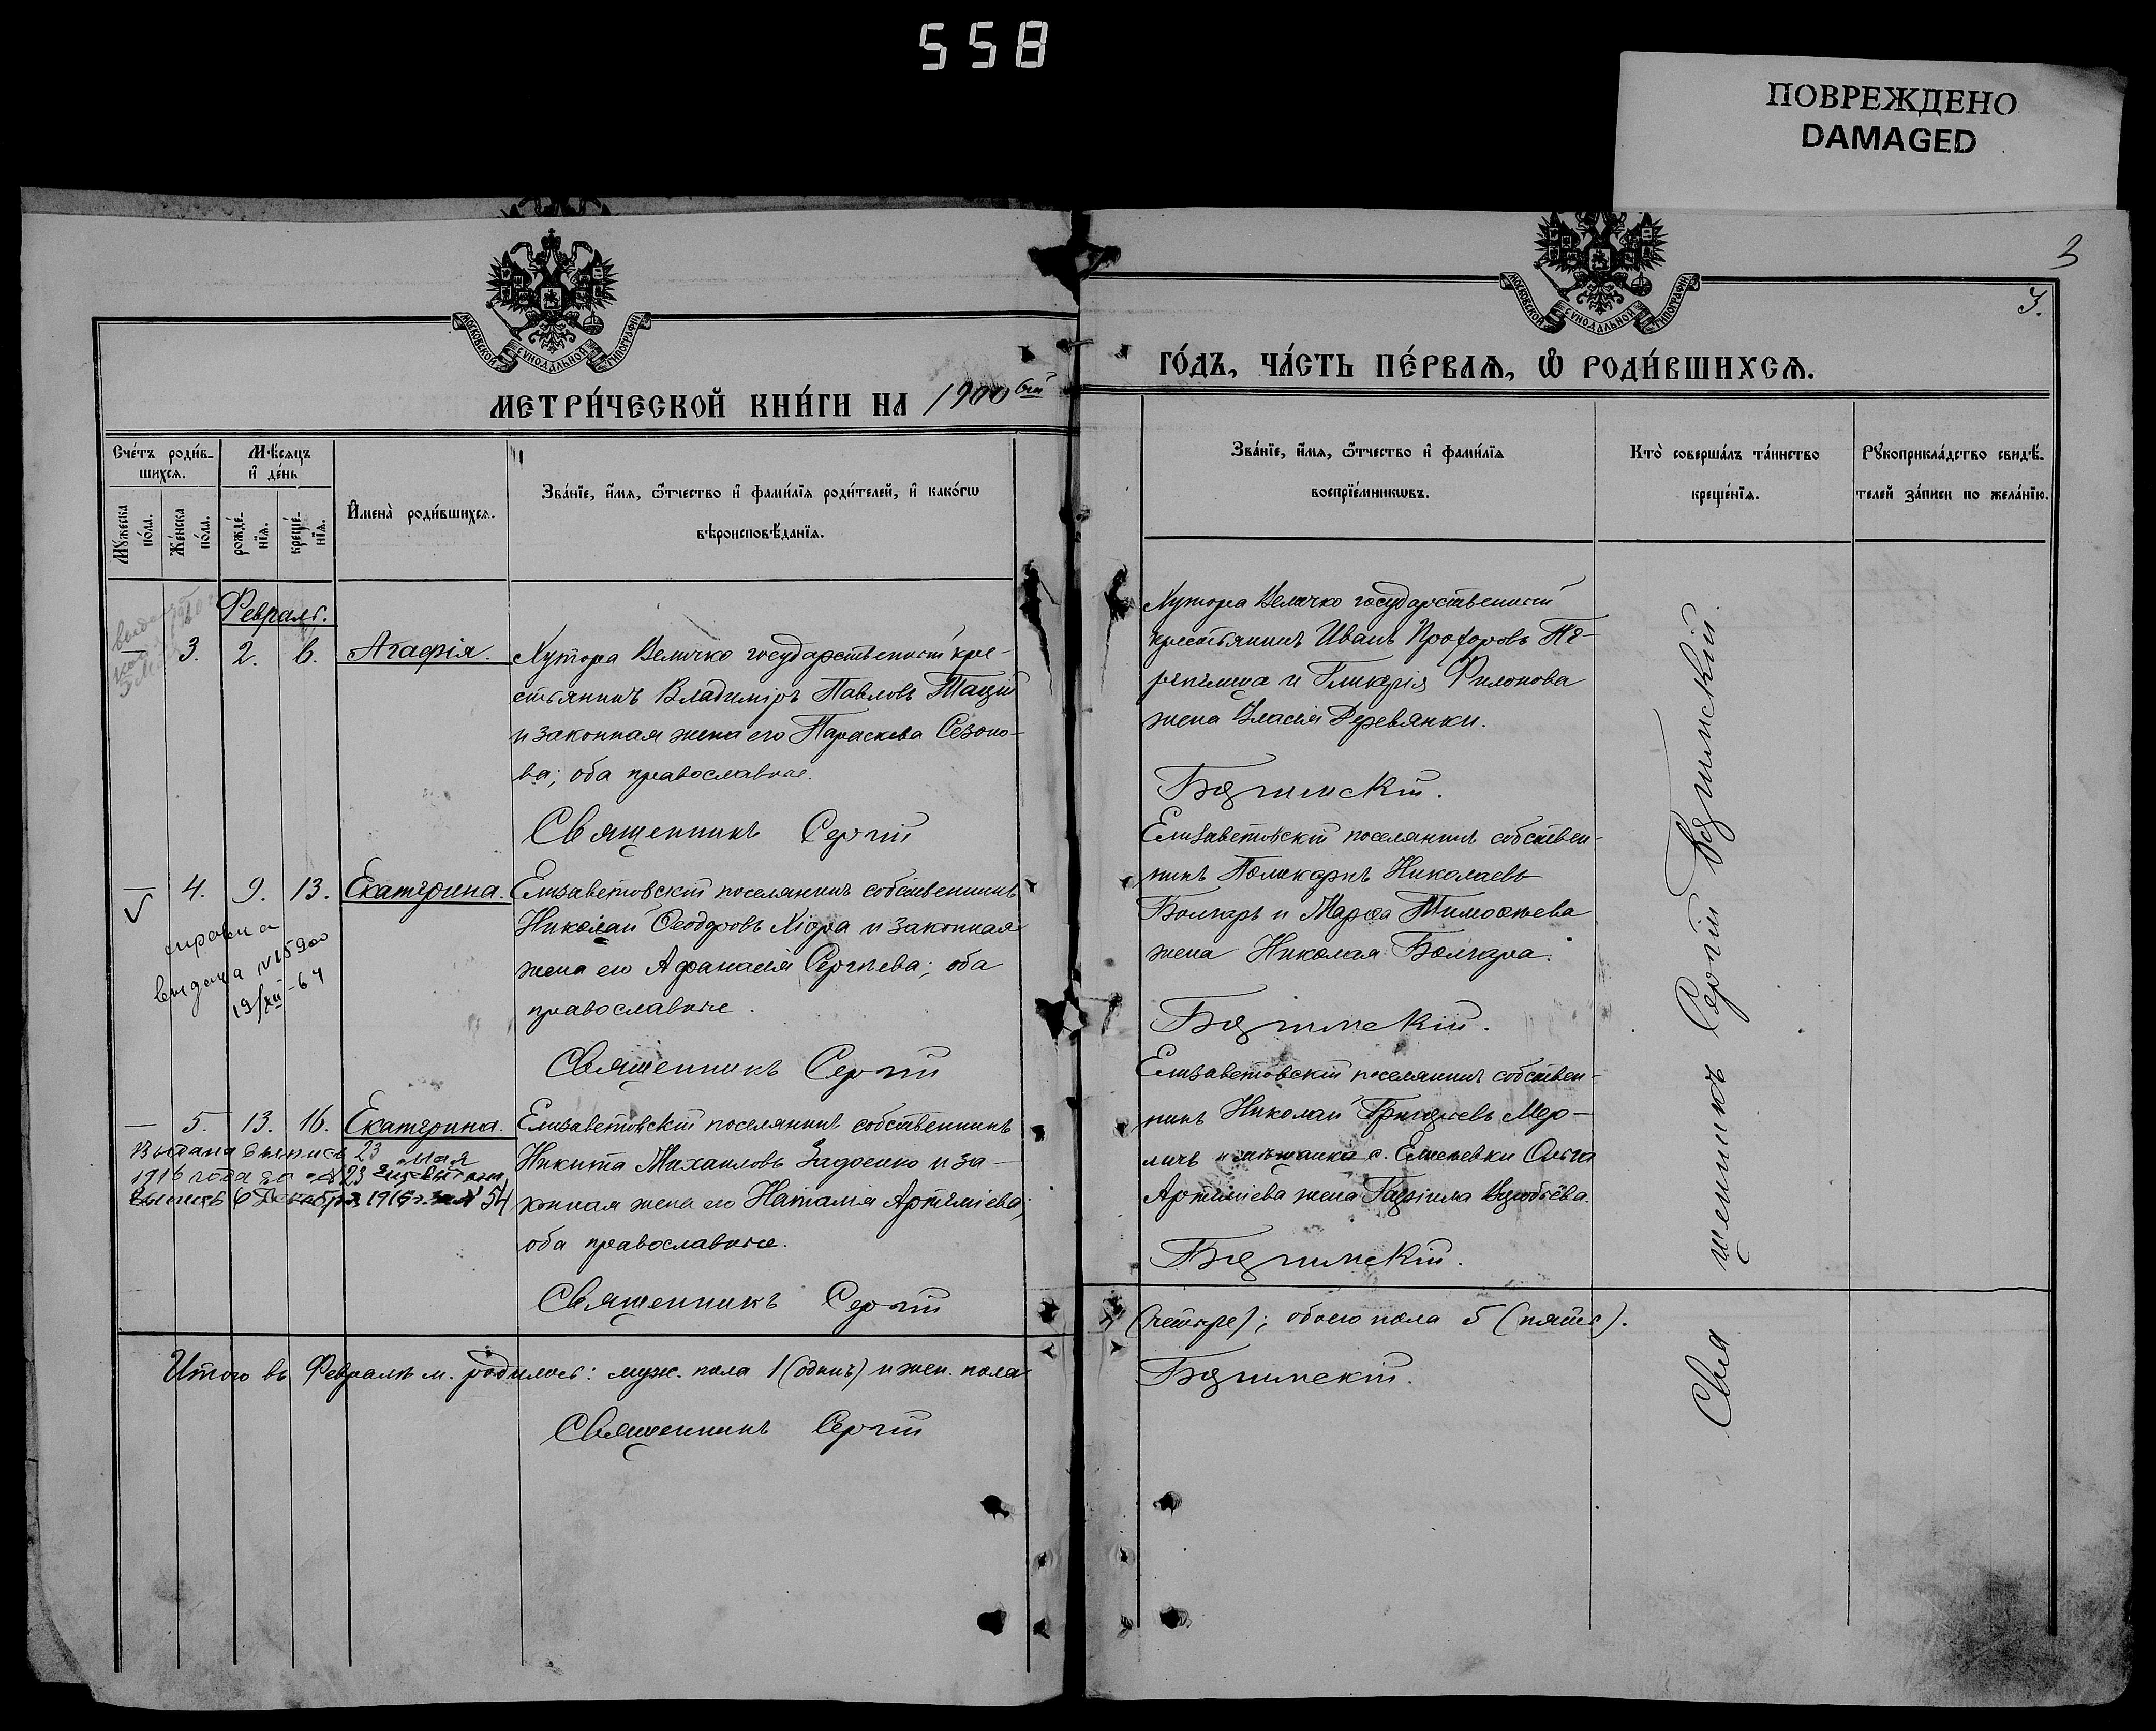 558
ПОВРЕЖДЕНО
DAMAGED
3
3.
МОСКОВСКОЙ СѴНОДАЛЬНОЙ ТИПОГРАФІИ
МОСКОВСКОЙ СѴНОДАЛЬНОЙ ТИПОГРАФІИ
МЕТРИ́ЧЕСКОЙ КНИ́ГИ НА 1900 ый
ГО́ДЪ, ЧА́СТЬ ПЕ́РВАѦ, Ѽ РОДИ́ВШИХСѦ.
Сче́тъ роди́в-
шихсѧ.
Мꙋжеска по́ла.
Же́нска по́ла.
Мѣ́сѧцъ
и҆ де́нь
рожде́-
нїѧ.
креще́-
нїѧ.
И҆мена̀ роди́вшихсѧ.
Зва́нїе, и҆́мѧ, ѻ҆́тчество и҆ фами́лїѧ роди́телей, и҆ како́гѡ
вѣроисповѣ́данїѧ.
Зва́нїе, и҆́мѧ, ѻ҆́тчество и҆ фами́лїѧ
воспрїе́мникѡвъ.
Кто̀ соверша́лъ та́инство
креще́нїѧ.
Рꙋкоприкла́дство свидѣ́-
телей за́писи по жела́нїю.
Февраль.
— 3. 2. 6. Агафія.
Хутора Величко государственный кре-
стьянинъ Владиміръ Павловъ Тацій
и законная жена его Параскева Сезоно-
ва; оба православные.
Священникъ Сергій
Хутора Величко государственный
крестьянинъ Иванъ Прохоровъ Пе-
репелица и Гликерія Филонова
жена Власія Деревянки.
Бязимскій.
— 4. 9. 13. Екатерина.
справка
выдана №15900
19/XII-64
Елизаветовскій поселянинъ собственникъ
Николай Ѳеодоровъ Хіора и законная
жена его Афанасія Сергіева; оба
православные.
Священникъ Сергій
Елизаветовскій поселянинъ собствен-
никъ Поликарпъ Николаевъ
Болгаръ и Марѳа Тимоѳеева
жена Николая Болгара.
Бязимскій.
— 5. 13. 16. Екатерина.
Выдана выпись 23 мая
1916 года за №23
выпись 6 Декабря 1916 г. за № 54
Елизаветовскій поселянинъ собственникъ
Никита Михаиловъ Задоенко и за-
конная жена его Наталія Артеміева;
оба православные.
Священникъ Сергій
Елизаветовскій поселянинъ собствен-
никъ Николай Григорьевъ Мер-
личъ и мѣщанка с. Еленевки Ольга
Артеміева жена Гавріила Воробьёва.
Бязимскій.
Итого въ Февралѣ м. родилось: муж. пола 1 (одинъ) и жен. пола
(четыре); обоего пола 5 (пять).
Священникъ Сергій
Бязимскій.
Священникъ Сергій Бязимскій